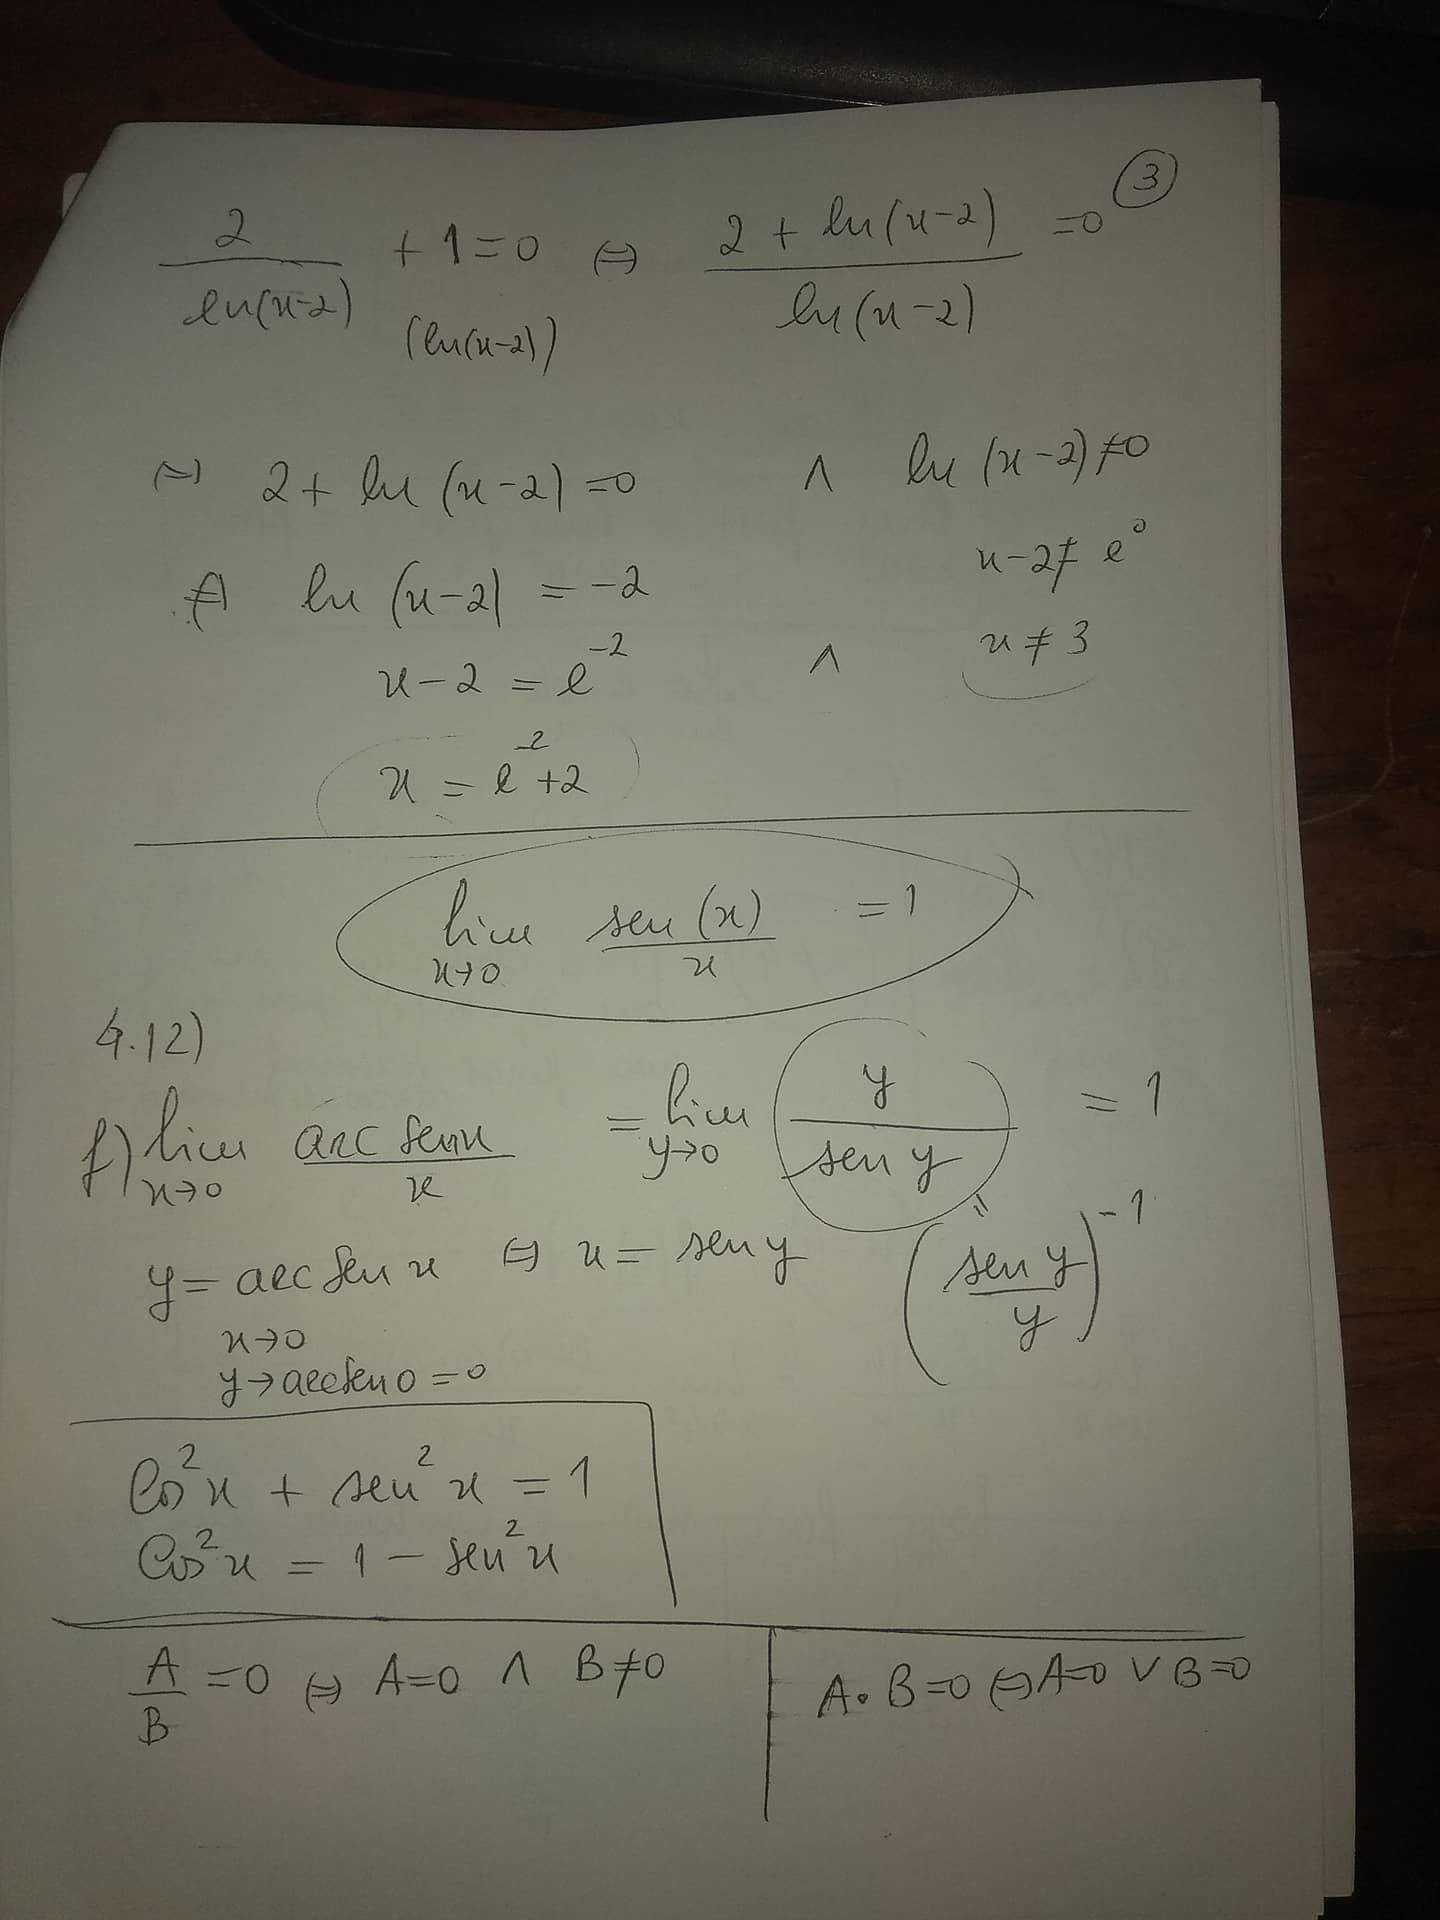 3
2/ln(x-2) + 1 = 0 ⇔ (2 + ln(x-2))/ln(x-2) = 0
(ln(x-2))
⇔ 2 + ln(x-2) = 0 ∧ ln(x-2) ≠ 0
⇔ ln(x-2) = -2 x-2 ≠ e^0
x-2 = e^-2 ∧ x ≠ 3
x = e^-2 + 2
lim x→0 sen(x)/x = 1
4.12)
f) lim x→0 arc sen x/x = lim y→0 y/sen y = 1
y = arc sen x ⇔ x = sen y " (sen y/y)^-1
x→0
y→arc sen 0 = 0
Cos²x + sen²x = 1
Cos²x = 1 - sen²x
A/B = 0 ⇔ A=0 ∧ B≠0 A•B=0 ⇔ A=0 ∨ B=0